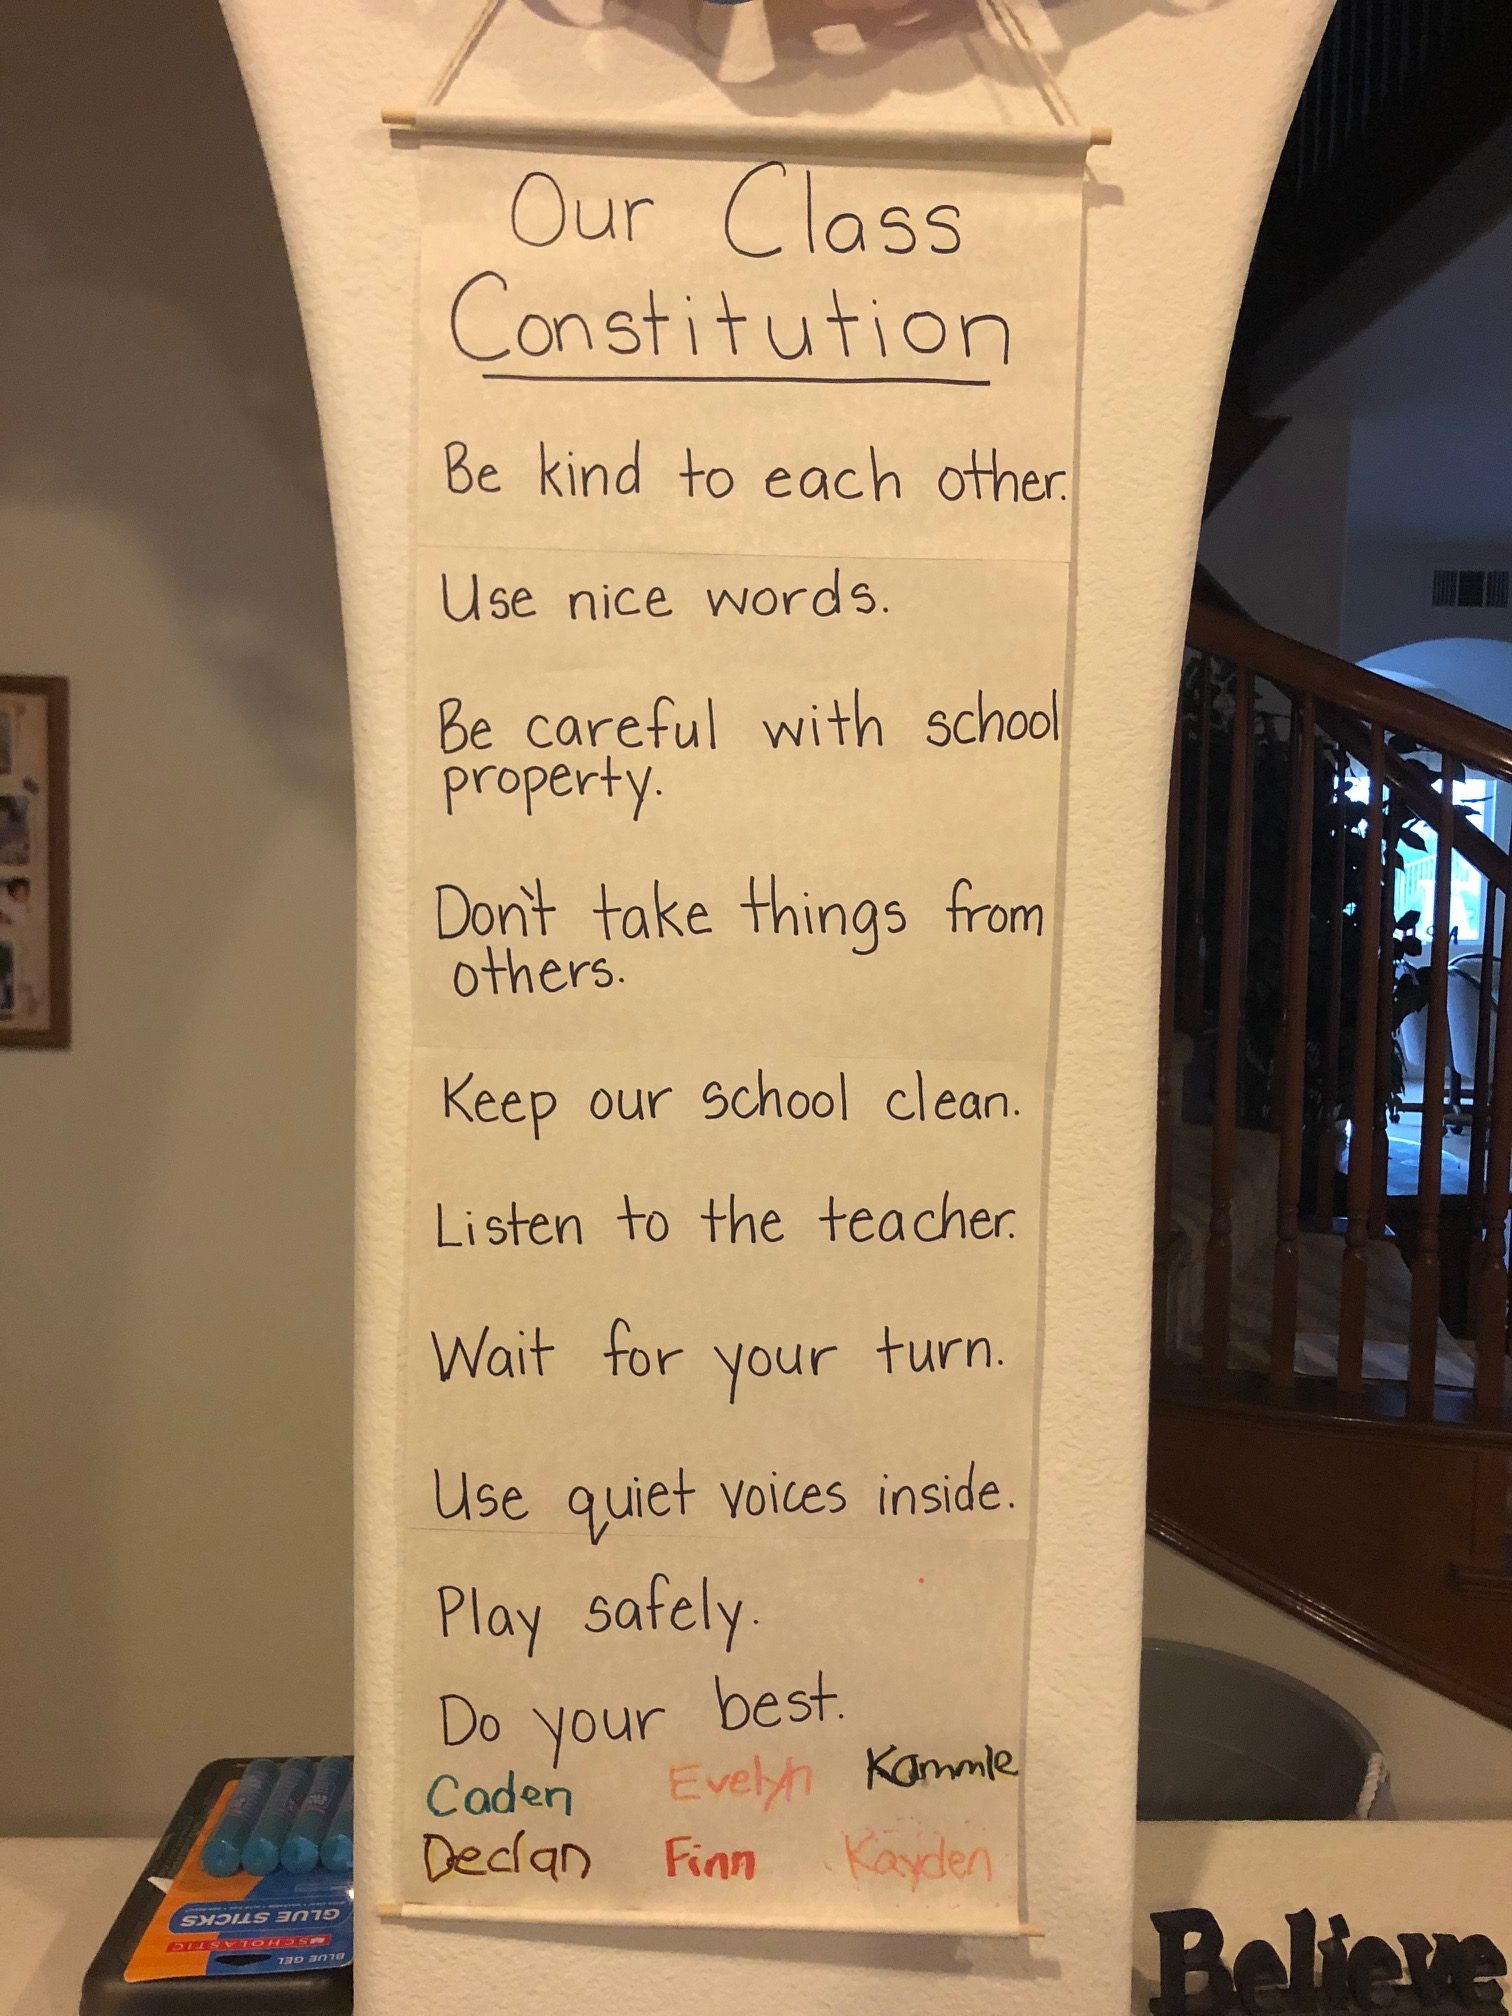 Our Class
Constitution
Be kind to each other.
Use nice words.
Be careful with school
property.
Don't take things from
others.
Keep our school clean.
Listen to the teacher.
Wait for your turn.
Use quiet voices inside.
Play safely.
Do your best.
Caden Evelyn Kammle
Declan Finn Kayden
GLUE STICKS
SCHOLASTIC
BLUE GEL
Believe